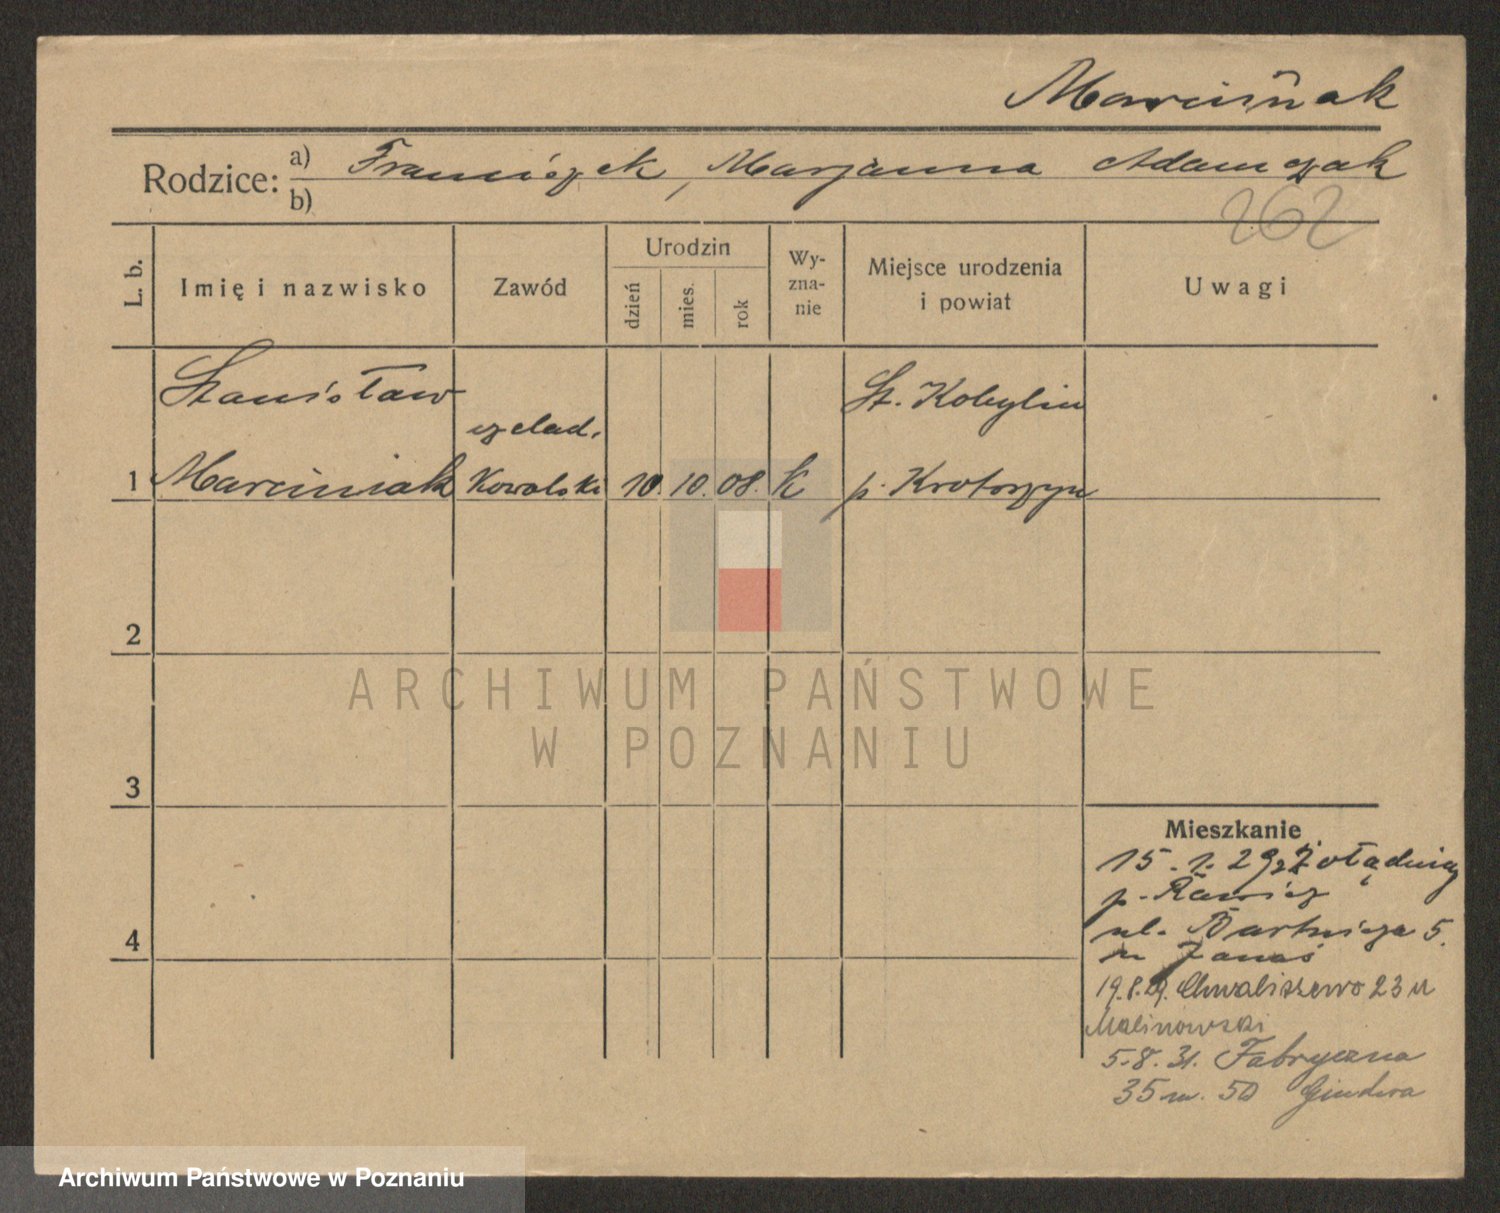 Marcińak
Rodzice: a) Franciszek, Marjanna Adamczak
b)
262
L. b.
Imię i nazwisko
Zawód
Urodzin
dzień
mies.
rok
Wy-
zna-
nie
Miejsce urodzenia
i powiat
Uwagi
Stanisław
czelad.
St. Kobylin
1 Marciniak Kowalski 10. 10. 08. K p. Krotoszyn
2
ARCHIWUM PAŃSTWOWE
W POZNANIU
3
Mieszkanie
15.1.29 z Żołędnicy
p. Rawicz
ul. Bartnicza 5.
m
19.8.29. Chwaliszewo 23 u
4
Malinowski
5.8.31. Fabryczna
35 m. 50
Archiwum Państwowe w Poznaniu